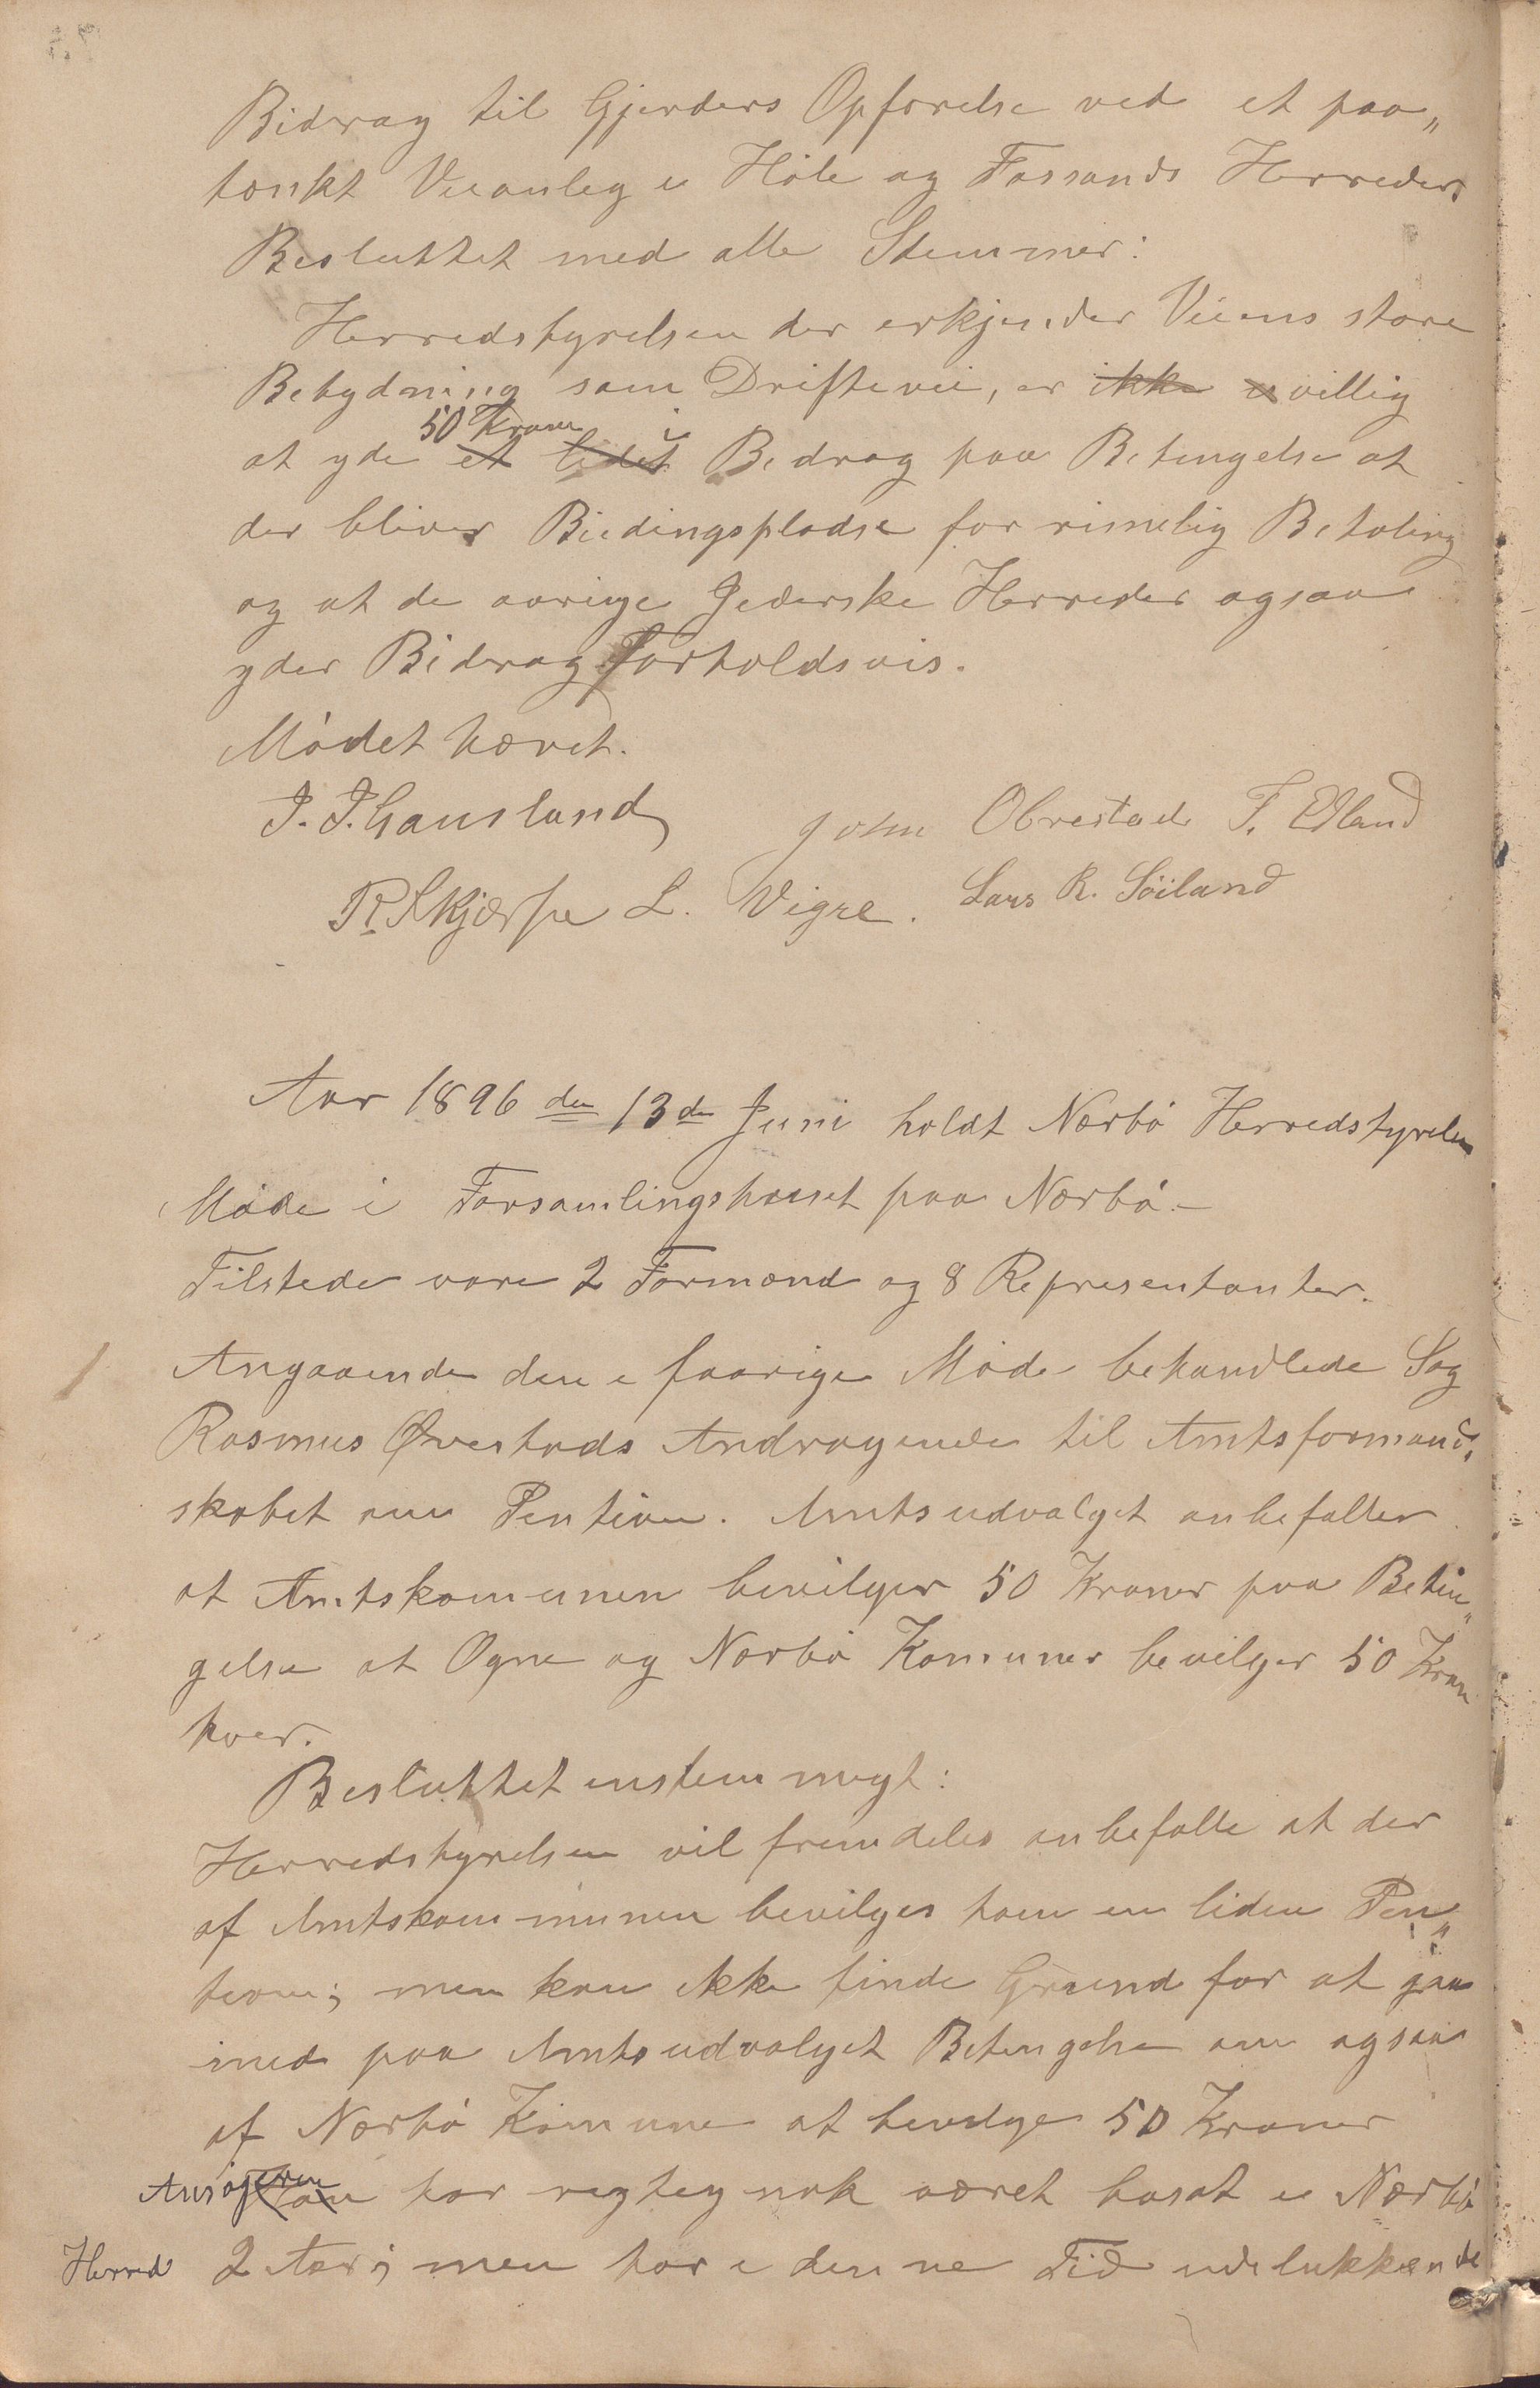 Bidrag til Gjerders Opførelse ved et paa„
tænkt Veianlæg i Høle og Fossands Herreder
Besluttet med alle Stemmer:
Herredstyrelsen der erkjender Veiens store
Betydning som Driftevei, er ikke u villig
50 Kroner i
at yde et lidet Bidrag paa Betingelse at
der bliver Biedingspladse for rimelig Betaling
og at de øvrige Jederske Herreder ogsaa
yder Bidrag Forholdsvis.
Mødet hævet.
J. J. Gausland John Obrestad T. Edland
R. Skjærpe L. Vigre. Lars R. Söiland
Aar 1896 den 13de Juni holdt Nærbø Herredstyrelse
Møde i Forsamlingshuset paa Nærbø.-
Tilstede vare 2 Formænd og 8 Representanter.
Angaaende den i faarige Møde behandlede Sag
Rasmus Øvestads Andragende til Amtsformand„
skabet om Pention. Amtsudvalget anbefaller
at Amtskomunen bevilger 50 Kroner paa Betin„
gelse at Ogne og Nærbø Komuner bevilger 50 Kron
hver.
Besluttet enstemmigt:
Herredstyrelsen vil fremdeles anbefalle at der
af Amtskommunen bevilges ham en liden Pen„
tion; men kan ikke finde Grund for at gaa
med paa Amtsudvalget Betingelse om ogsaa
af Nærbø Komune at bevilge 50 Kroner
Ansøgeren har regtig nok været bosat i Nærbø
Herred 2 Aar; men har i denne Tid udelukkende